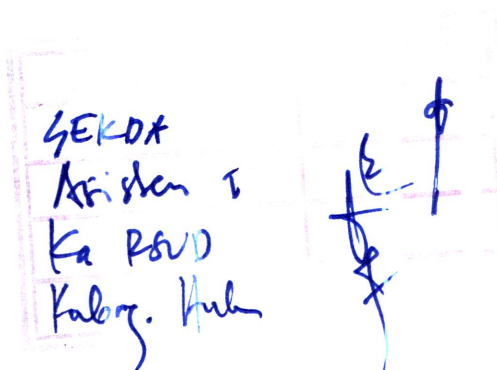 SEKDA
Asisten I
Ka RSUD
Kabag. Hukum